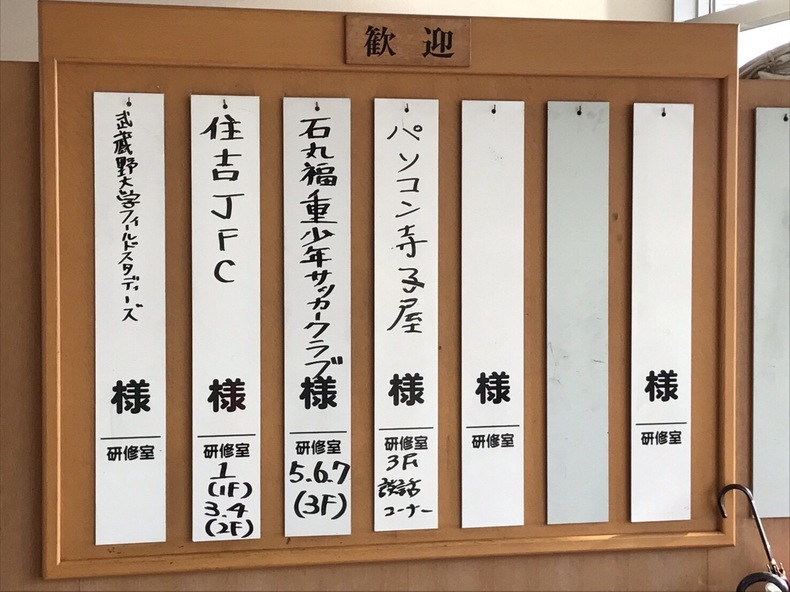 歓迎
武蔵野大学フィールドスタディーズ
様
研修室
住吉JFC
様
研修室
1
(1F)
3.4
(2F)
石丸福重少年サッカークラブ
様
研修室
5.6.7
(3F)
パソコン寺子屋
様
研修室
3F
談話
コーナー
様
研修室
様
研修室